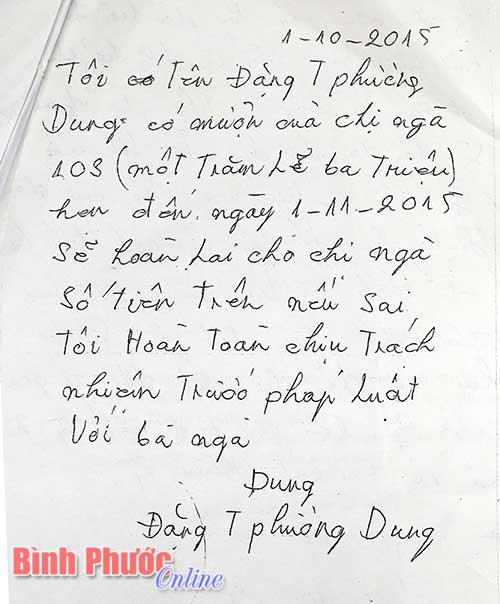 1-10-2015
Tôi có Tên Đặng T phường
Dung có mượn của chị ngà
103 (một Trăm Lẽ ba Triệu)
hẹn đến ngày 1-11-2015
Sẽ hoàn Lại cho chi ngà
Số Tiền Trên nếu Sai
Tôi Hoàn Toàn chịu Trách
nhiên Trướ phap Luật
Với bà ngà
Dung
Đặng T phường Dung
Bình Phước
Online